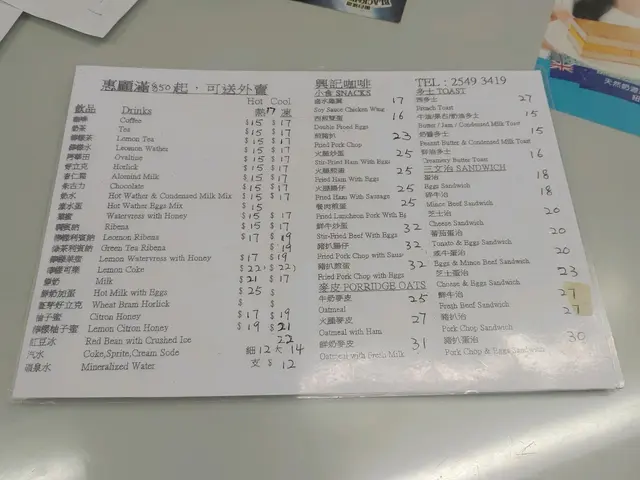 惠顧滿$50起，可送外賣
Hot Cool
飲品 Drinks 熱 凍
咖啡 Coffee $15 $17
奶茶 Tea $15 $17
檸檬茶 Lemon Tea $15 $17
檸檬水 Leomon Wather $15 $17
阿華田 Ovaltine $15 $17
好立克 Horlick $15 $17
杏仁霜 Alomnd Milk $15 $17
朱古力 Chocolate $15 $17
奶水 Hot Wather & Condensed Milk Mix $15 $17
蛋水 Hot Wather Eggs Mix $15
菜蜜 Watervress with Honey $15 $17
利賓納 Ribena $15 $17
檸檬利賓納 Leomon Ribena $17 $19
綠茶利賓納 Green Tea Ribena $19
檸檬菜蜜 Lemon Watervress with Honey $17 $19
檸檬可樂 Lemon Coke $22 $22
鮮奶 Milk $21 $17
鮮奶加蛋 Hot Milk with Eggs $25 $
麥芽好立克 Wheat Bram Horlick $ $
柚子蜜 Citron Honey $17 $19
檸檬柚子蜜 Lemon Citron Honey $19 $21
紅豆冰 Red Bean with Crushed Ice 22
汽水 Coke,Sprite,Cream Sode 細12 大14
礦泉水 Mineralized Water 支 $12
興記咖啡
小食 SNACKS
Soy Sauce Chicken Wing 17
西煎雙蛋 16
Double Froed Eggs
煎豬扒 23
Fried Pork Chop
火腿炒蛋 25
Stir-Fried Ham With Eggs
火腿煎蛋 25
Fried Ham With Eggs
火腿腸仔 25
Fried Ham With Sausage
餐肉煎蛋 25
Fried Luncheon Pork With Eg
鮮牛炒蛋 32
Stir-Fried Beef With Eggs
豬扒腸仔 32
Fried Pork Chop with Saus
豬扒煎蛋 32
Fried Pork Chop with Eggs
麥皮 PORRIDGE OATS
牛奶麥皮 25
Oatmeal
火腿麥皮 27
Oatmeal with Ham
鮮奶麥皮 31
Oatmeal with Fresh Milk
TEL : 2549 3419
多士 TOAST
西多士 27
French Toast
15
Butter / Jam / Condensed Milk Toast
奶醬多士 15
Peanut Butter & Condensed Milk Toast
鮮油多士 16
Creamery Butter Toast
三文治 SANDWICH
蛋治 18
Eggs Sandwich
鮮牛治 18
Mince Beef Sandwich
芝士治 20
Cheese Sandwich
蕃茄蛋治 20
Tomato & Eggs Sandwich
20
Eggs & Mince Beef Sandwich
芝士蛋治 23
Cheese & Eggs Sandwich
鮮牛治 27
Fresh Beef Sandwich
豬扒治 27
Pork Chop Sandwich
豬扒蛋治 30
Pork Chop & Eggs Sandwich